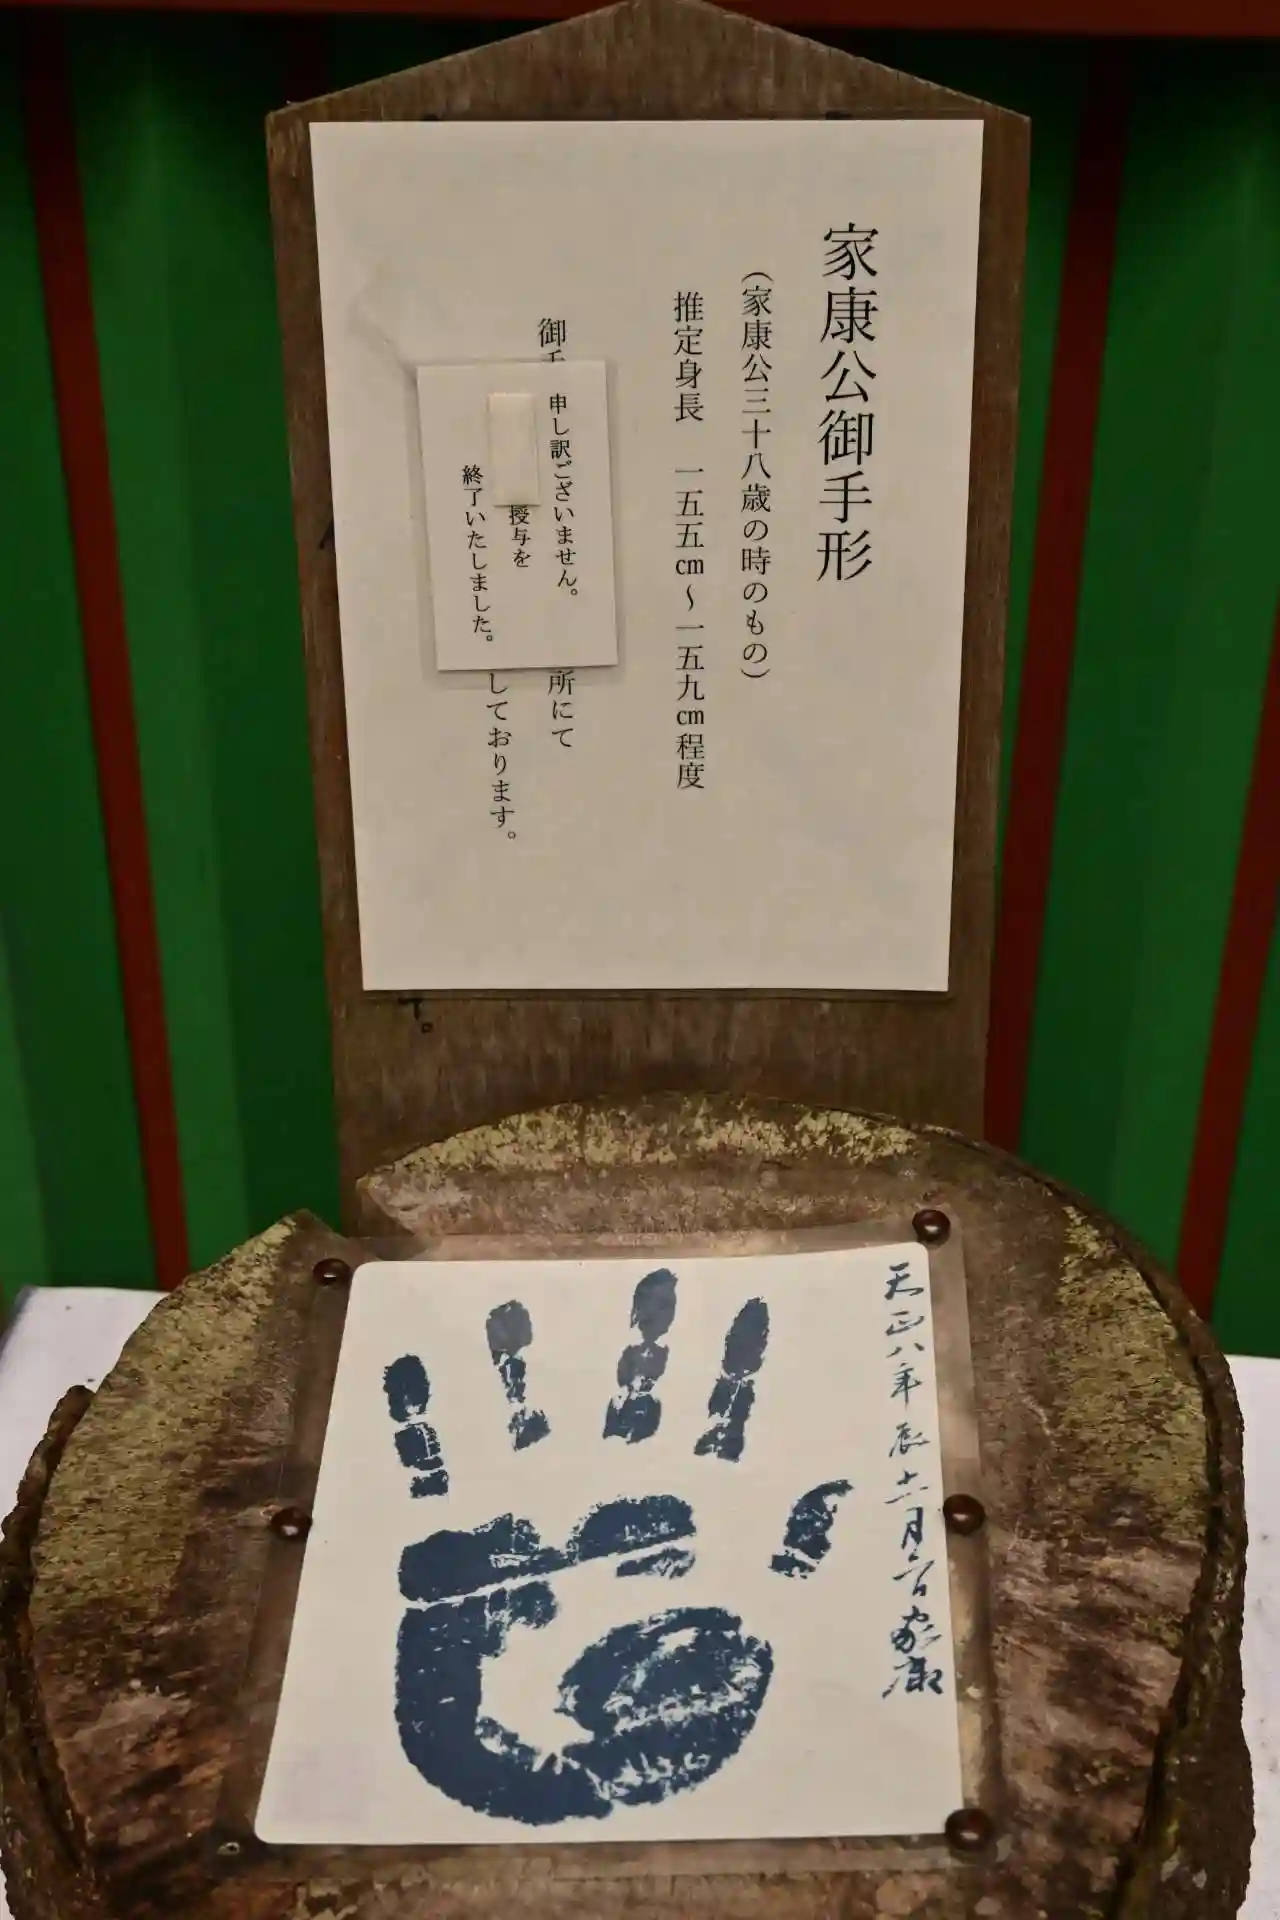 家康公御手形
（家康公三十八歳の時のもの）
推定身長　一五五㎝～一五九㎝程度
御手
所にて
しております。
申し訳ございません。
授与を
終了いたしました。
す。
天正八年辰十一月六日家康